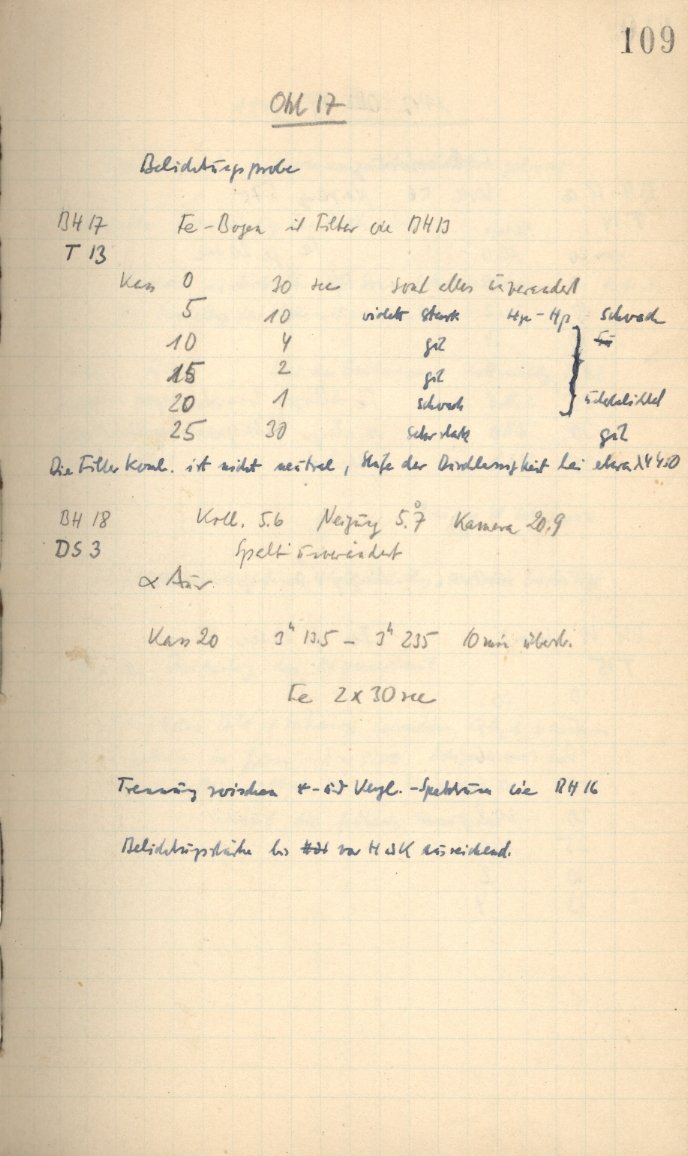 109
Okt 17
Belichtungsprobe
BH 17 Fe-Bogen mit Filter wie BH 13
T 13
Kass 0 30 sec sonst alles unverändert
5 10 violett stark Hγ - Hβ schwach
10 4 gut
15 2 gut
20 1 schwach unterbelichtet
25 30 sehr stark gut
Die Filter Komb. ist nicht neutral, Stufe der Durchlässigkeit bei etwa λ 4450
BH 18 Koll. 5.6 Neigung 5°.7 Kamera 20.9
DS 3 Spalt unverändert
α Aur.
Kass 20 3h 13.5 - 3h 23.5 10 min überb.
Fe 2 x 30 sec
Trennung zwischen *- und Vergl.-Spektrum wie BH 16
Belichtungsstärke bis vor H u K ausreichend.